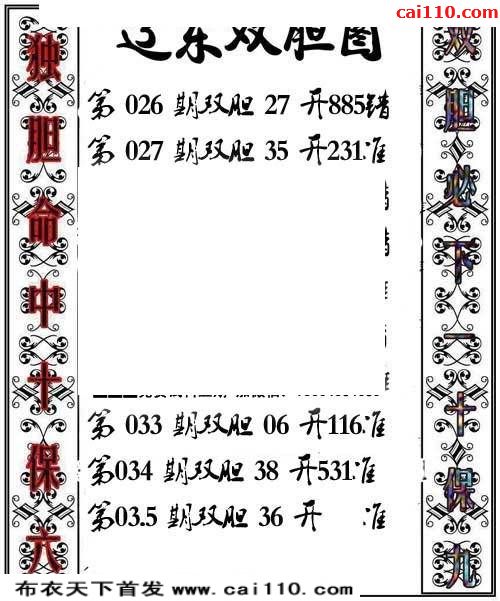 cai110.com
辽东双胆图
独胆命中十保六
双胆必下一十保九
第 026 期双胆 27 开885错
第 027 期双胆 35 开231准
第 033 期双胆 06 开116准
第034 期双胆 38 开531准
第03.5 期双胆 36 开 准
布衣天下首发 www.cai110.com